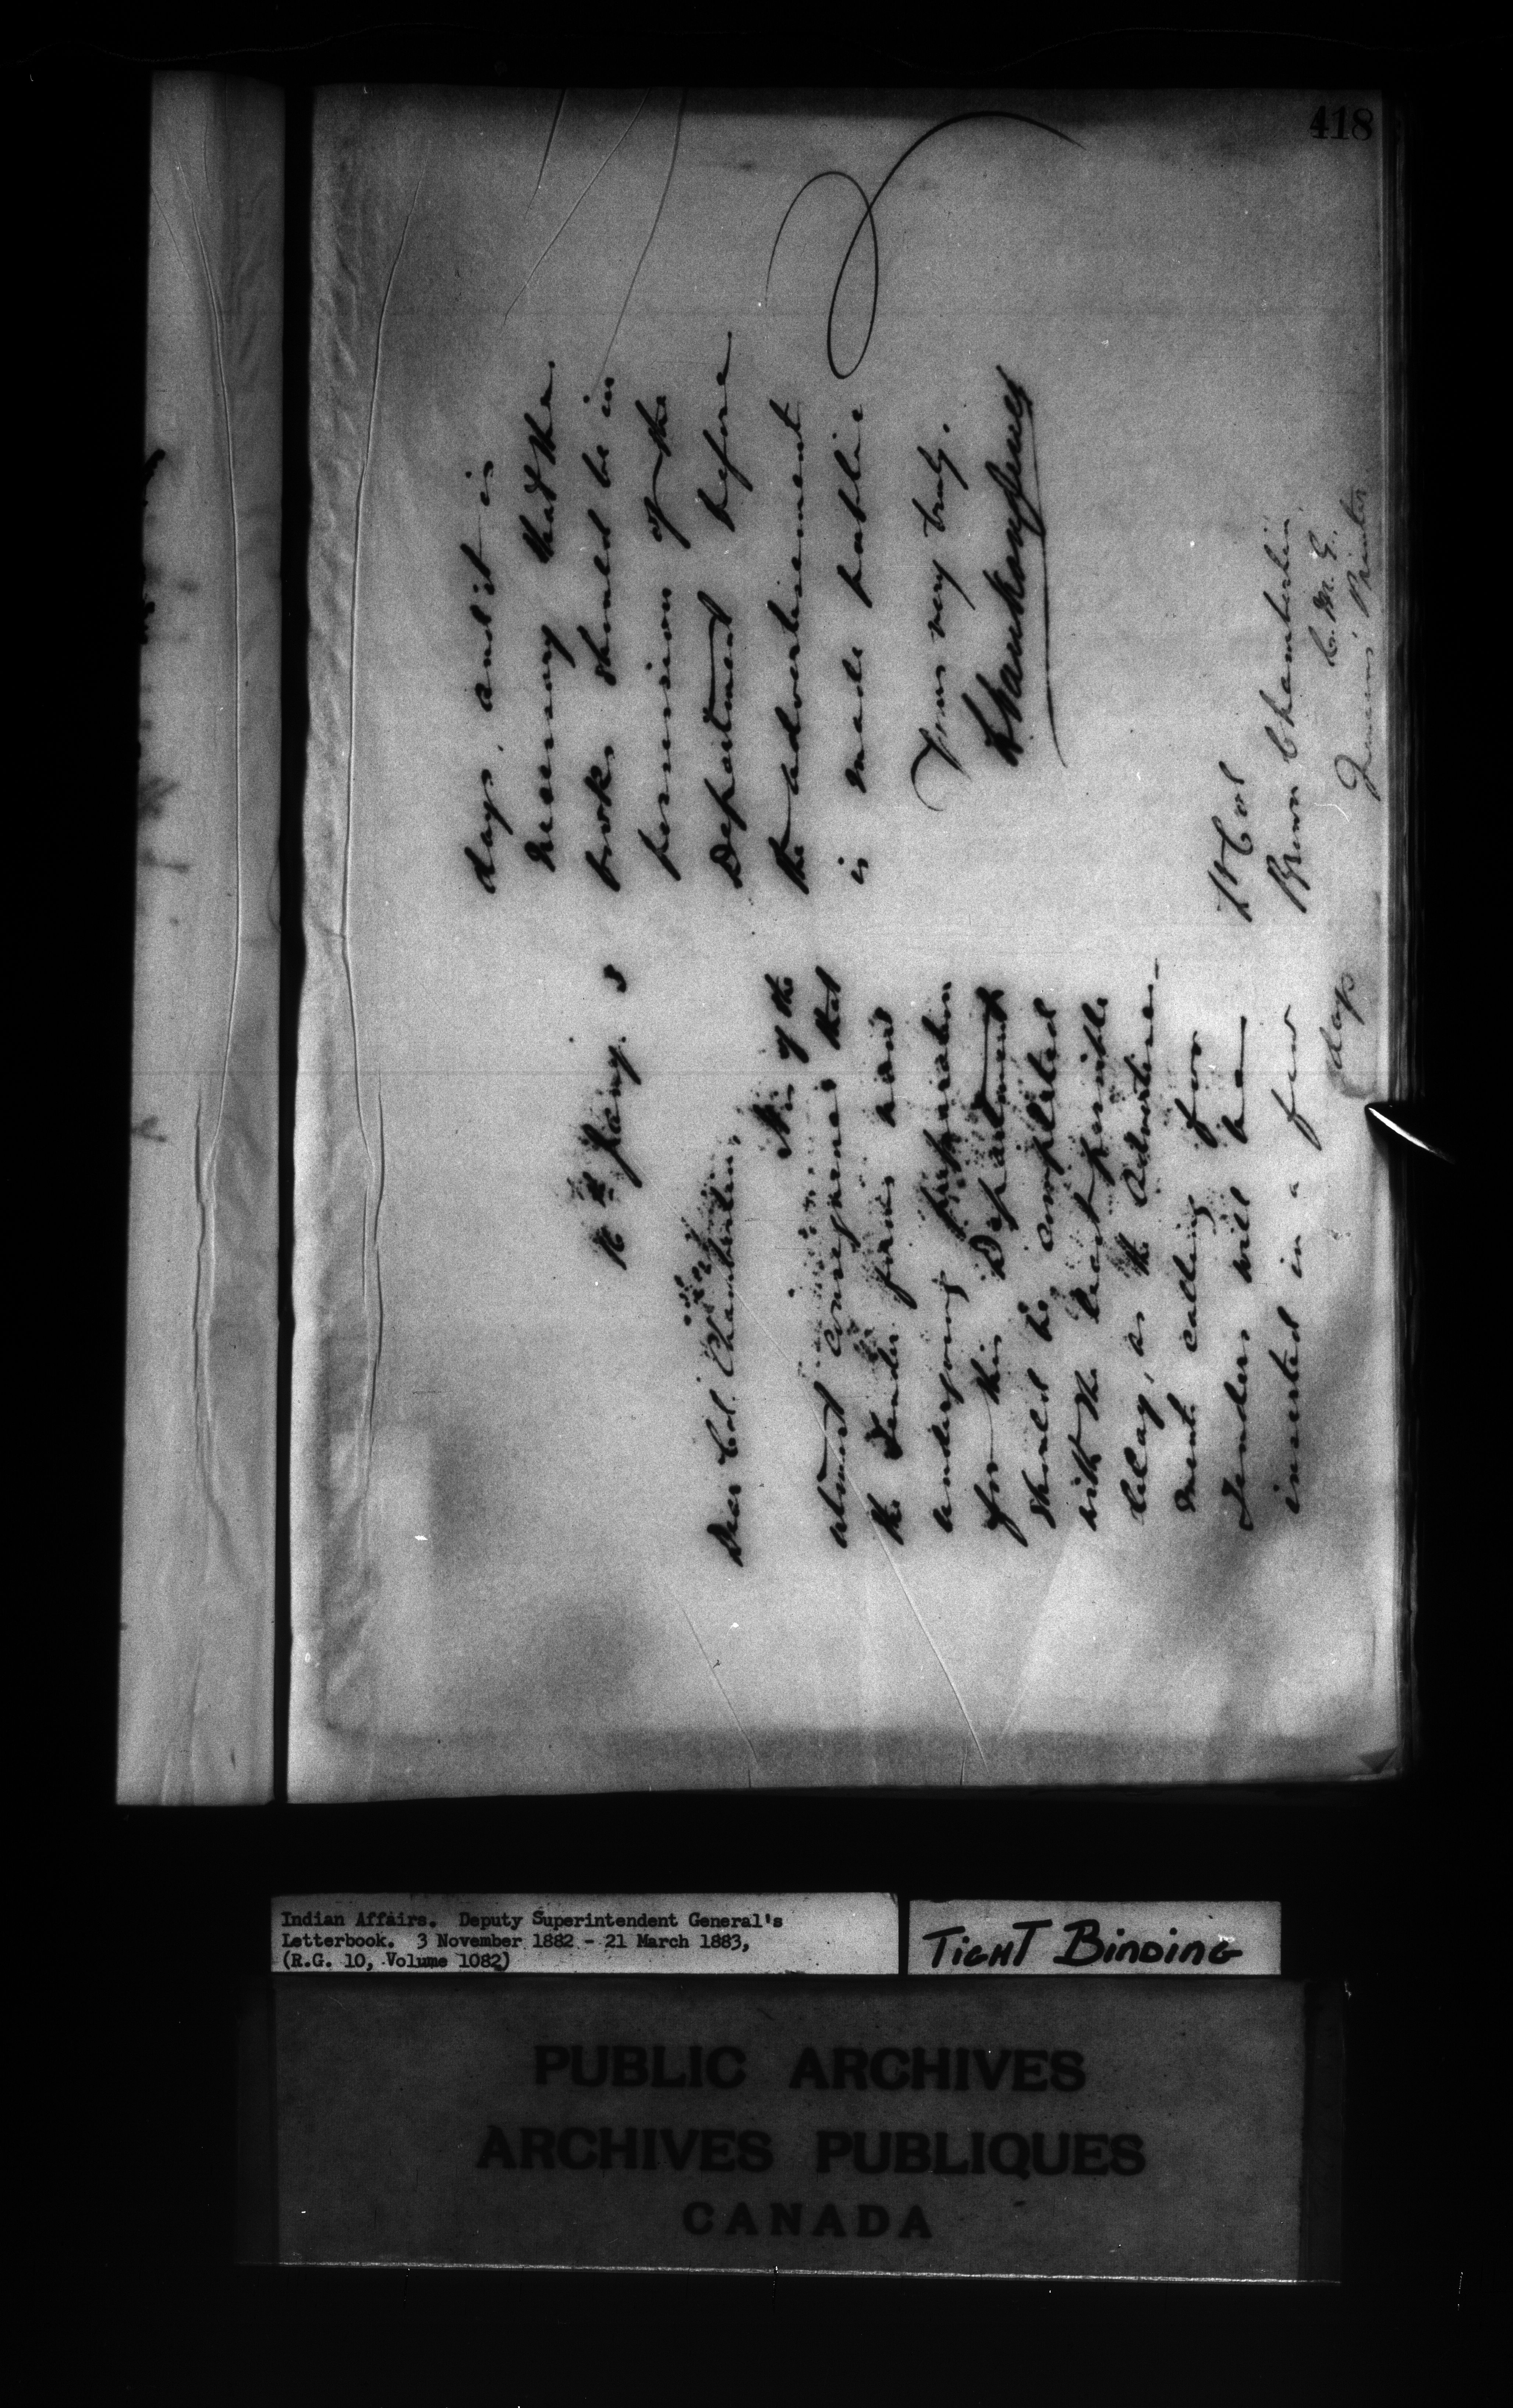 418
Jany. 3
Dear Col. Chamberlin,
It is of the
utmost consequence that
the Tender forms and
undergoing preparation
for this Department
should be completed
with the least possible
delay, as the Advertise-
ment calling for
Tenders will be
inserted in a few
days
days, and it is
necessary that the
books should be in
possession of the
Department before
the advertisement
is made public
Yours very truly.
L Vankoughnet
Lt Col
Brown Chamberlin,
C.M.G.,
Queen's Printer
Indian Affairs. Deputy Superintendent General's
Letterbook. 3 November 1882 - 21 March 1883,
(R.G. 10, Volume 1082)
TIGHT BINDING
PUBLIC ARCHIVES
ARCHIVES PUBLIQUES
CANADA